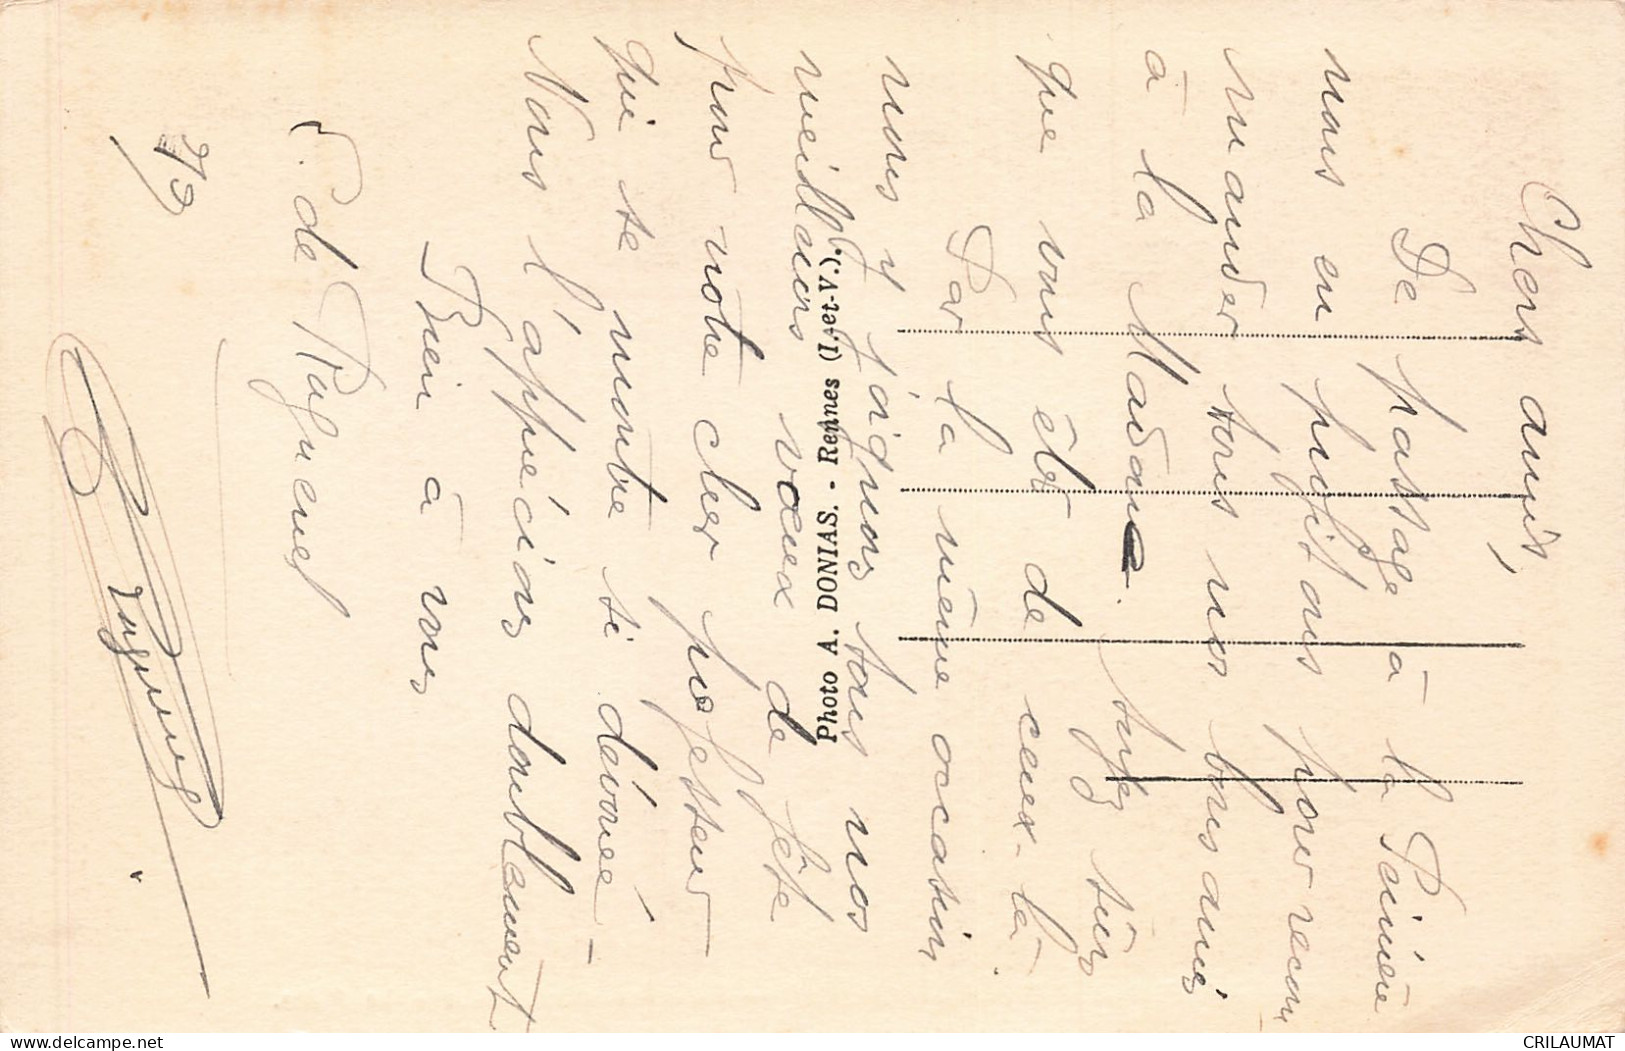 Chers amis,
De passage à la Peinière
nous en profitons pour recom
mander tous nos bons amis
à la Madone. Soyez sûrs
que vous êtes de ceux-là
Par la même occasion
nous y joignons tous nos
meilleurs vœux de fête
pour notre cher professeur
qui se montre si dévoué -
Nous l'apprécions doublement
Bien à vous
de Raguenel
2/9
Photo A. DONIAS. - Rennes (I.-et-V.).
delcampe.net
CRILAUMAT